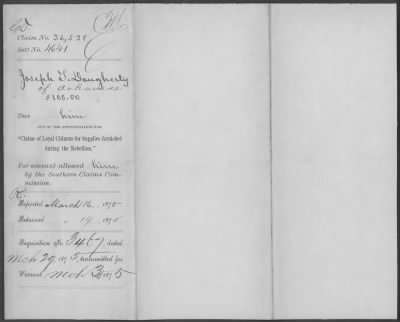 Claim No. 36,538
Sett No. 4641
Joseph T. Daugherty
of Arkansas
$100.00
Due him
OUT OF THE APPROPRIATION FOR
"Claims of Loyal Citizens for Supplies furnished
during the Rebellion."
For amount allowed him
by the Southern Claims Com-
mission.
R.
Reported March 16, 1875
Returned " 19, 1875
Requisition No. 3467, dated
Mch 29, 1875, transmitted for
Warrant Mch 1875